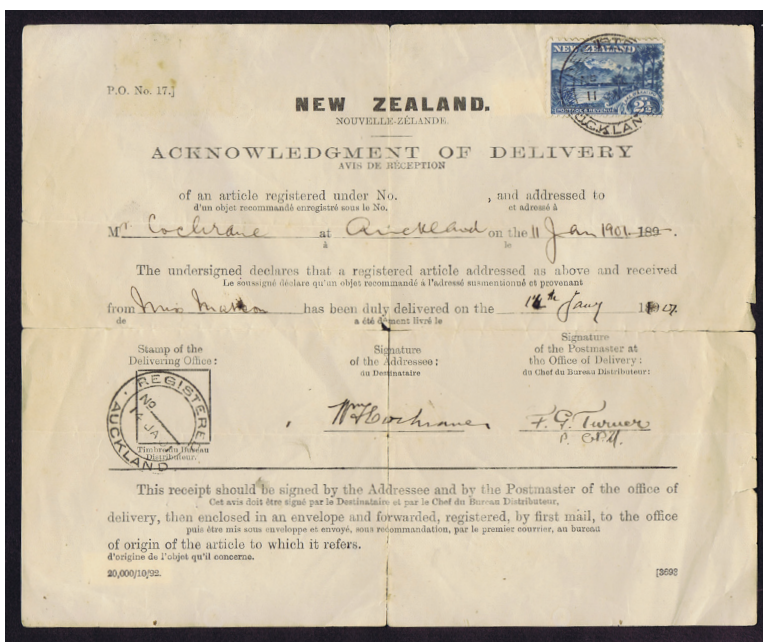 P.O. No. 17.]
NEW ZEALAND.
NOUVELLE-ZÉLANDE.
NEW ZEALAND
POSTAGE & REVENUE
2½
REGISTERED
11
AUCKLAND
ACKNOWLEDGMENT OF DELIVERY
AVIS DE RÉCEPTION
of an article registered under No. , and addressed to
d'un objet recommandé enregistré sous le No. et adressé à
Mr Cochrane at Auckland on the 11 Jan 1901 189 .
à le
The undersigned declares that a registered article addressed as above and received
Le soussigné déclare qu'un objet recommandé à l'adresse susmentionné et provenant
from Miss has been duly delivered on the 14th Jany
de a été dûment livré le
Stamp of the Delivering Office:
Signature of the Addressee:
du Destinataire
Signature of the Postmaster at the Office of Delivery:
du Chef du Bureau Distributeur:
REGISTERED
No
14 JA
AUCKLAND
Timbre du Bureau Distributeur.
Wm Cochrane
F. G. Turner
This receipt should be signed by the Addressee and by the Postmaster of the office of
Cet avis doit être signé par le Destinataire et par le Chef du Bureau Distributeur,
delivery, then enclosed in an envelope and forwarded, registered, by first mail, to the office
puis être mis sous enveloppe et envoyé, sous recommandation, par le premier courrier, au bureau
of origin of the article to which it refers.
d'origine de l'objet qu'il concerne.
20,000/10/92.
[3698